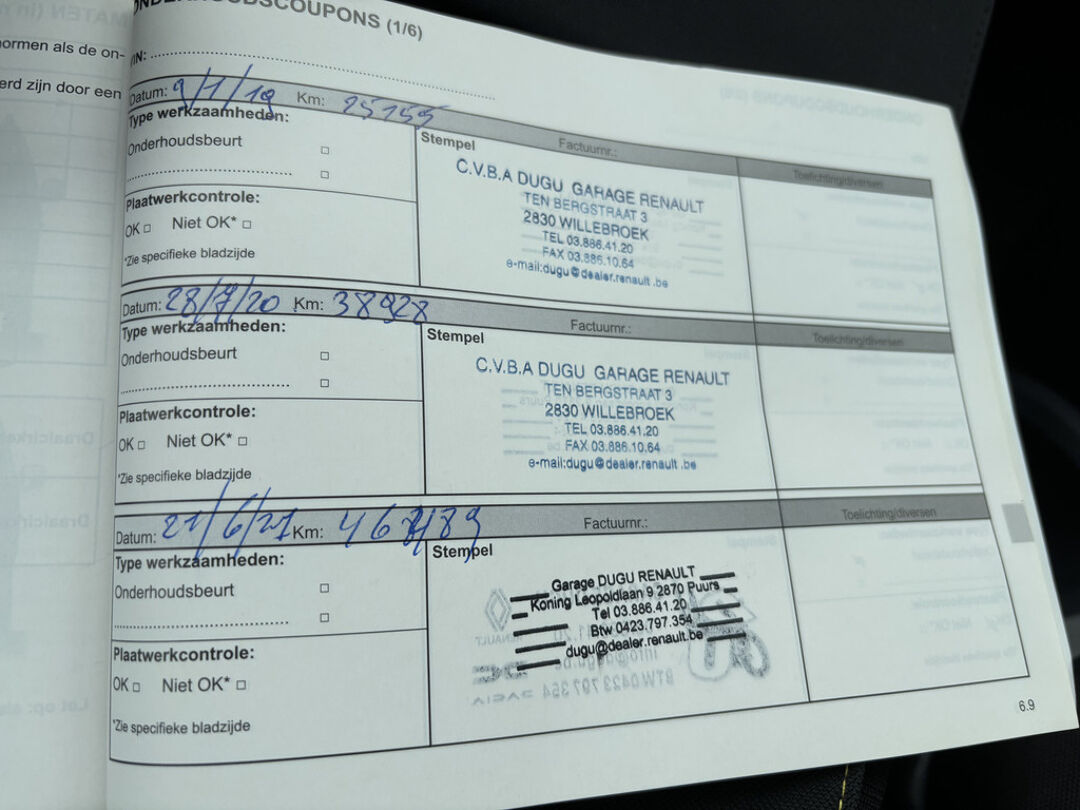 ormen als de on-
erd zijn door een
ONDERHOUDSCOUPONS (1/6)
VIN:
Datum: 9/1/19 Km: 25155
Type werkzaamheden:
Onderhoudsbeurt □
□
Plaatwerkcontrole:
OK □ Niet OK* □
*Zie specifieke bladzijde
Stempel Factuurnr.: Toelichting/diversen
C.V.B.A DUGU GARAGE RENAULT
TEN BERGSTRAAT 3
2830 WILLEBROEK
TEL 03.886.41.20
FAX 03.886.10.64
e-mail:dugu@dealer.renault.be
Datum: 28/7/20 Km: 38928
Type werkzaamheden:
Onderhoudsbeurt □
□
Plaatwerkcontrole:
OK □ Niet OK* □
*Zie specifieke bladzijde
Stempel Factuurnr.: Toelichting/diversen
C.V.B.A DUGU GARAGE RENAULT
TEN BERGSTRAAT 3
2830 WILLEBROEK
TEL 03.886.41.20
FAX 03.886.10.64
e-mail:dugu@dealer.renault.be
Datum: 21/6/21 Km:
Type werkzaamheden:
Onderhoudsbeurt □
□
Plaatwerkcontrole:
OK □ Niet OK* □
*Zie specifieke bladzijde
Stempel Factuurnr.: Toelichting/diversen
Garage DUGU RENAULT
Koning Leopoldlaan 9 2870 Puurs
Tel 03.886.41.20
Btw 0423.797.354
dugu@dealer.renault.be
6.9